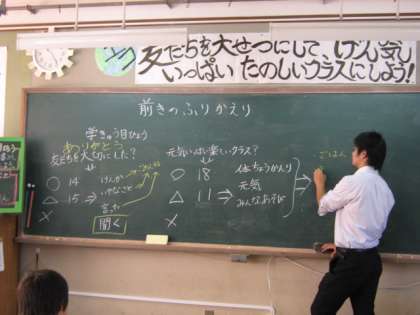 友だちを大せつにして、げん気
いっぱい たのしいクラスにしよう!
前きのふりかえり
学きゅう目ひょう
ありがとう
友だちを大切にした?
○ 14 けんか
△ 15 ⇒ いやなこと
× 言った
聞く
元気いっぱい楽しいクラス?
○ 18 体ちょうかんり
△ 11 ⇒ 元気
× みんなあそび
ごはん